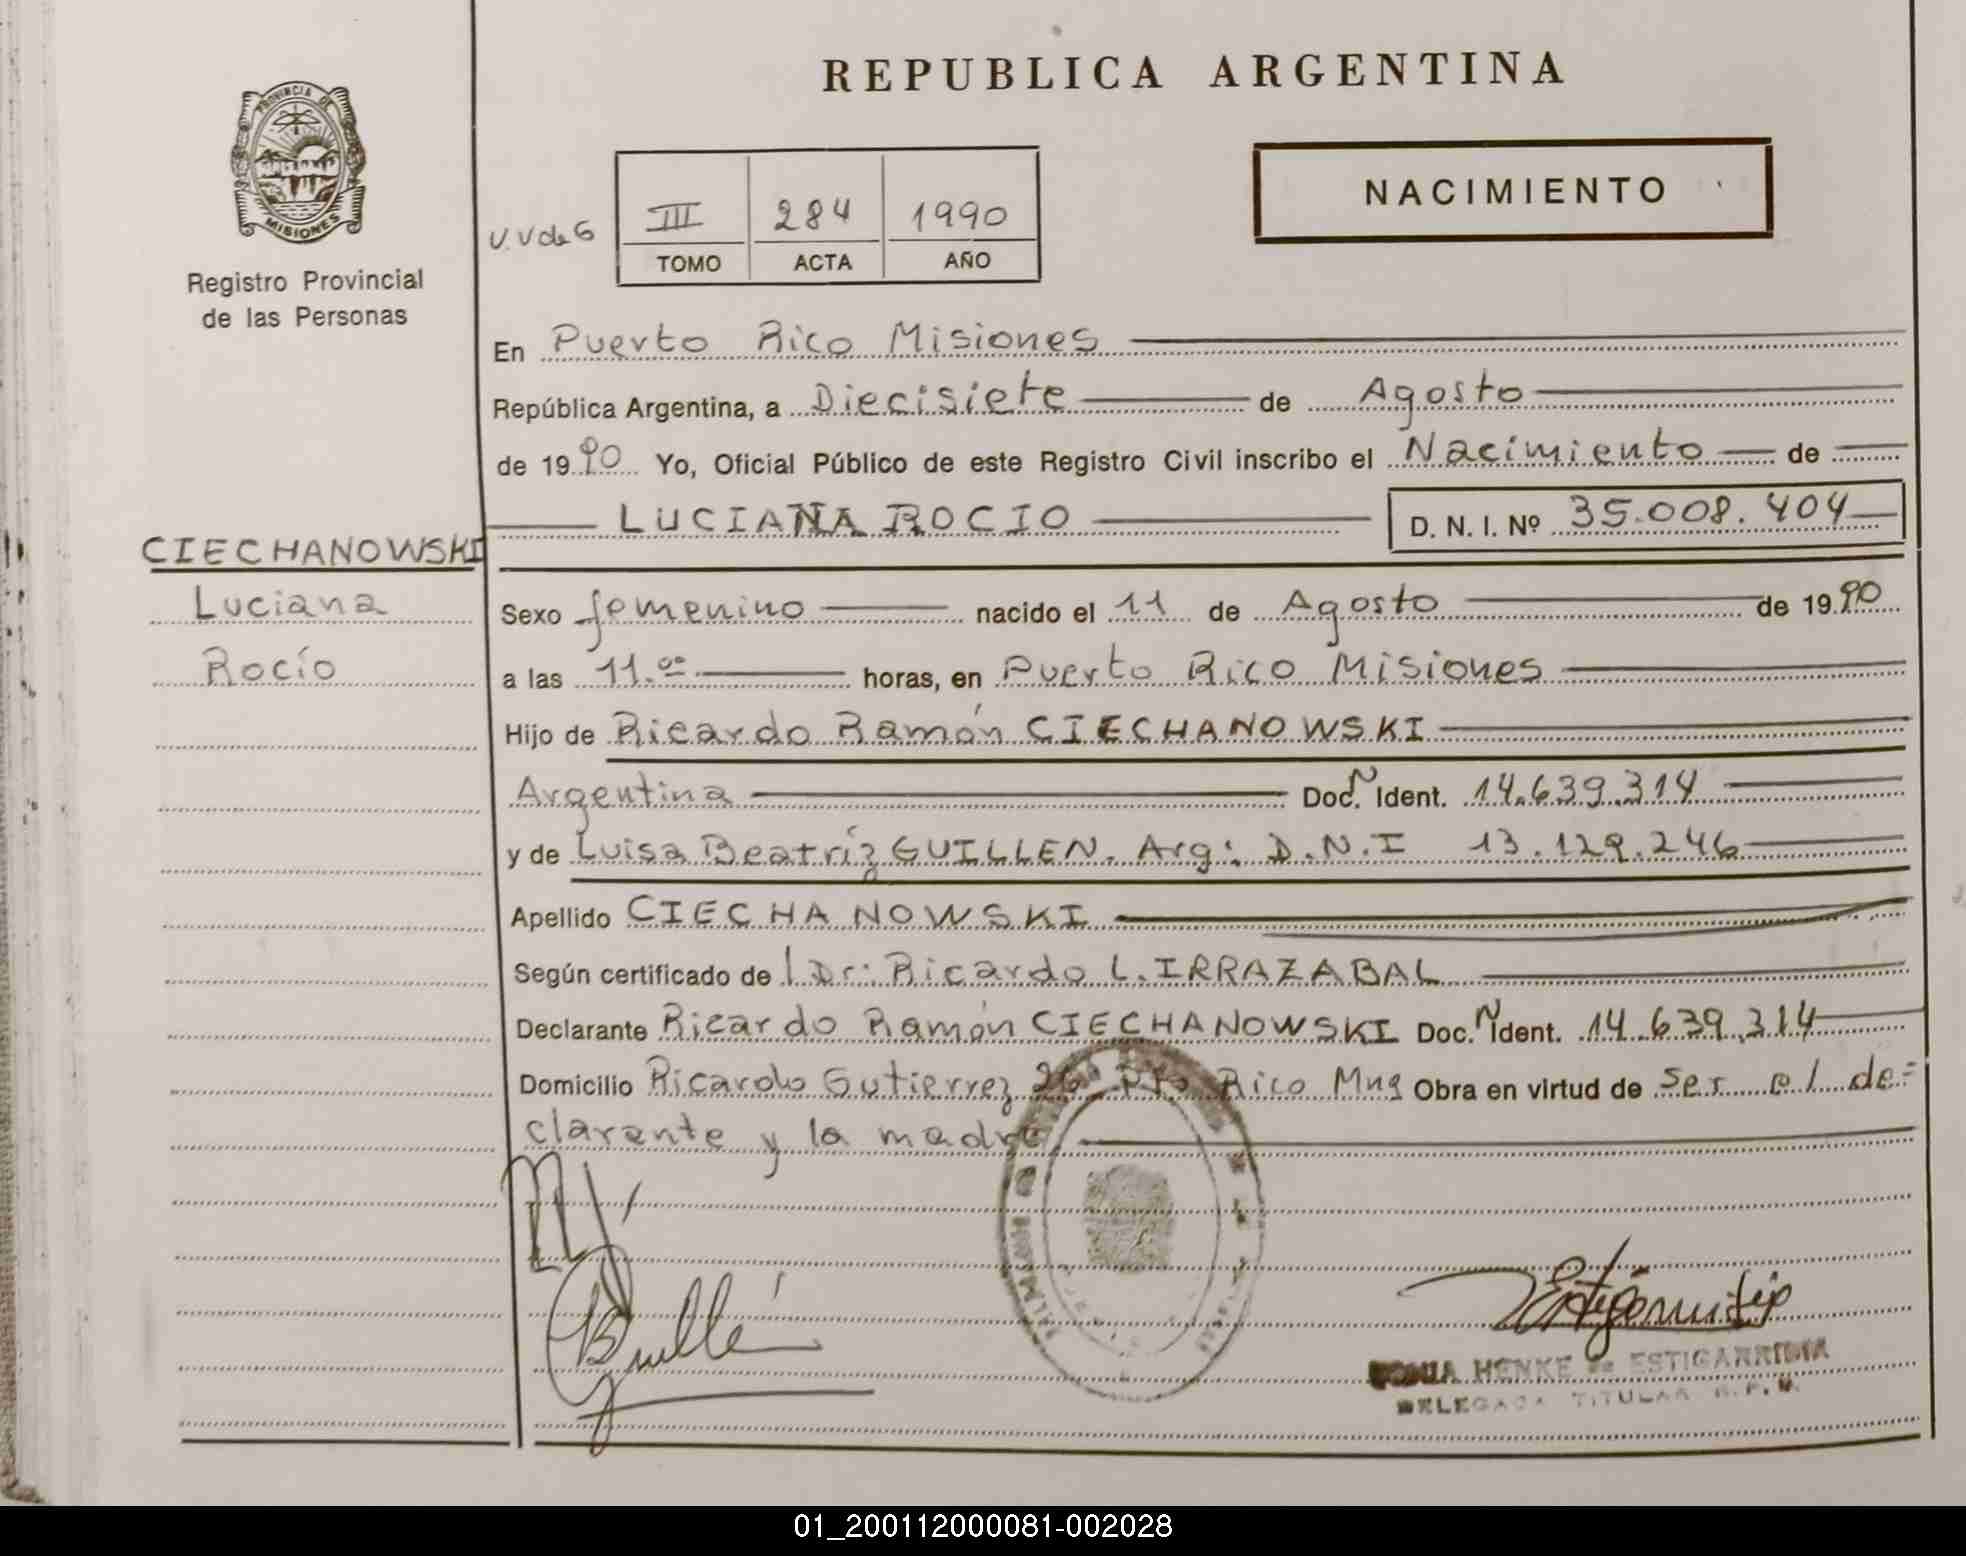 REPUBLICA ARGENTINA
PROVINCIA DE
MISIONES
Registro Provincial
de las Personas
NACIMIENTO
U.V de G
III 284 1990
TOMO ACTA AÑO
En Puerto Rico Misiones
República Argentina, a Diecisiete de Agosto
de 1990 Yo, Oficial Público de este Registro Civil inscribo el Nacimiento de
LUCIANA ROCIO D. N. I. Nº 35.008.404
CIECHANOWSKI
Luciana
Rocío
Sexo femenino nacido el 11 de Agosto de 1990
a las 11.00 horas, en Puerto Rico Misiones
Hijo de Ricardo Ramón CIECHANOWSKI
Argentina Doc. N Ident. 14.639.314
y de Luisa Beatríz GUILLEN. Arg: D.N.I 13.129.246
Apellido CIECHANOWSKI
Según certificado de l Dr: Ricardo L. IRRAZABAL
Declarante Ricardo Ramón CIECHANOWSKI Doc. N Ident. 14.639.314
Domicilio Ricardo Gutierrez Pto Rico Mns Obra en virtud de ser el de-
clarante y la madre
HENKE de ESTIGARRIBIA
DELEGADA TITULAR R.P.
01_200112000081-002028